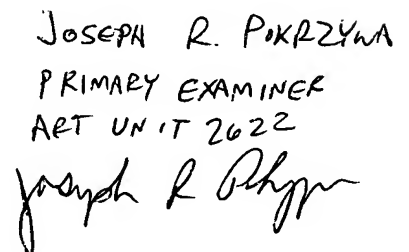 JOSEPH R. POKRZYWA
PRIMARY EXAMINER
ART UNIT 2622
Joseph R Pokrzywa